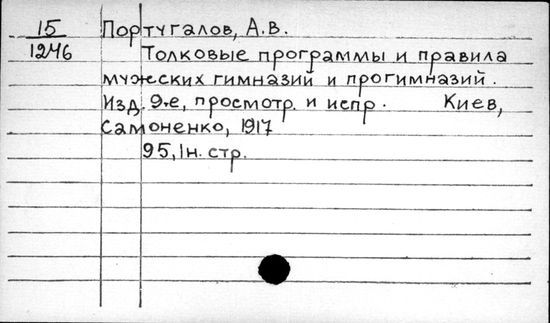 15 Португалов, А.В.
1246 Толковые программы и правила
мужских гимназий и прогимназий.
Изд. 9-е, просмотр. и испр. Киев,
Самоненко, 1917
95, 1н. стр.